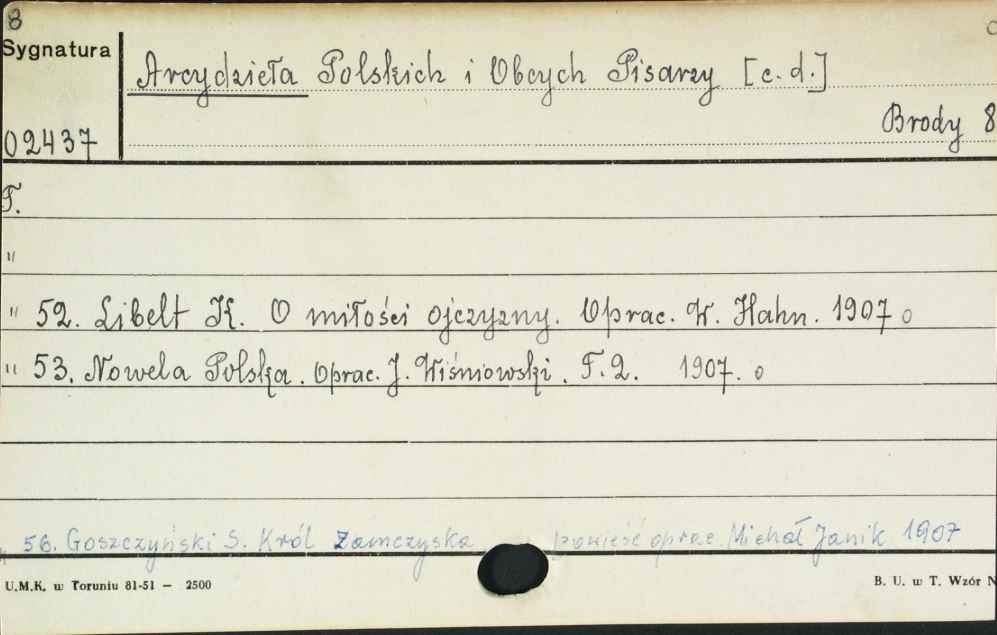 8
Sygnatura
Arcydzieła Polskich i Obcych Pisarzy [c.d.]
02437
Brody 8
T.
"
" 52. Libelt K. O miłości ojczyzny. Oprac. W. Hahn. 1907 o
" 53. Nowela Polska. oprac. J. Wiśniowski. T.2. 1907. o
" 56. Goszczyński S. Król Zamczyska powieść oprac. Michał Janik 1907
U.M.K. w Toruniu 81-51 — 2500
B. U. w T. Wzór N